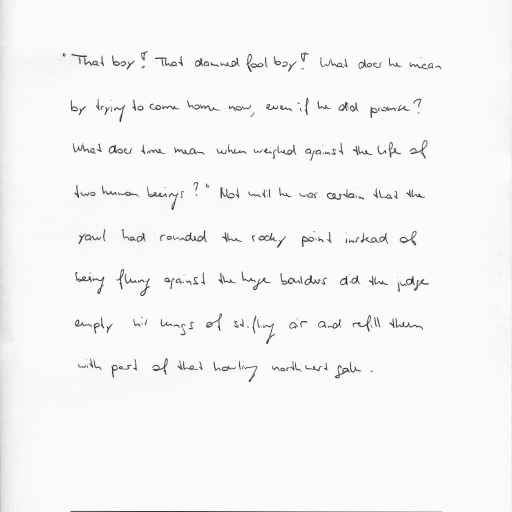 "That boy! That damned fool boy! What does he mean
by trying to come home now, even if he did promise?
What does time mean when weighed against the life of
two human beeings?" Not until he was certain that the
yawl had rounded the rocky point instead of
being flung against the huge boulders did the judge
empty his lungs of stifling air and refill them
with part of that howling northwest gale.